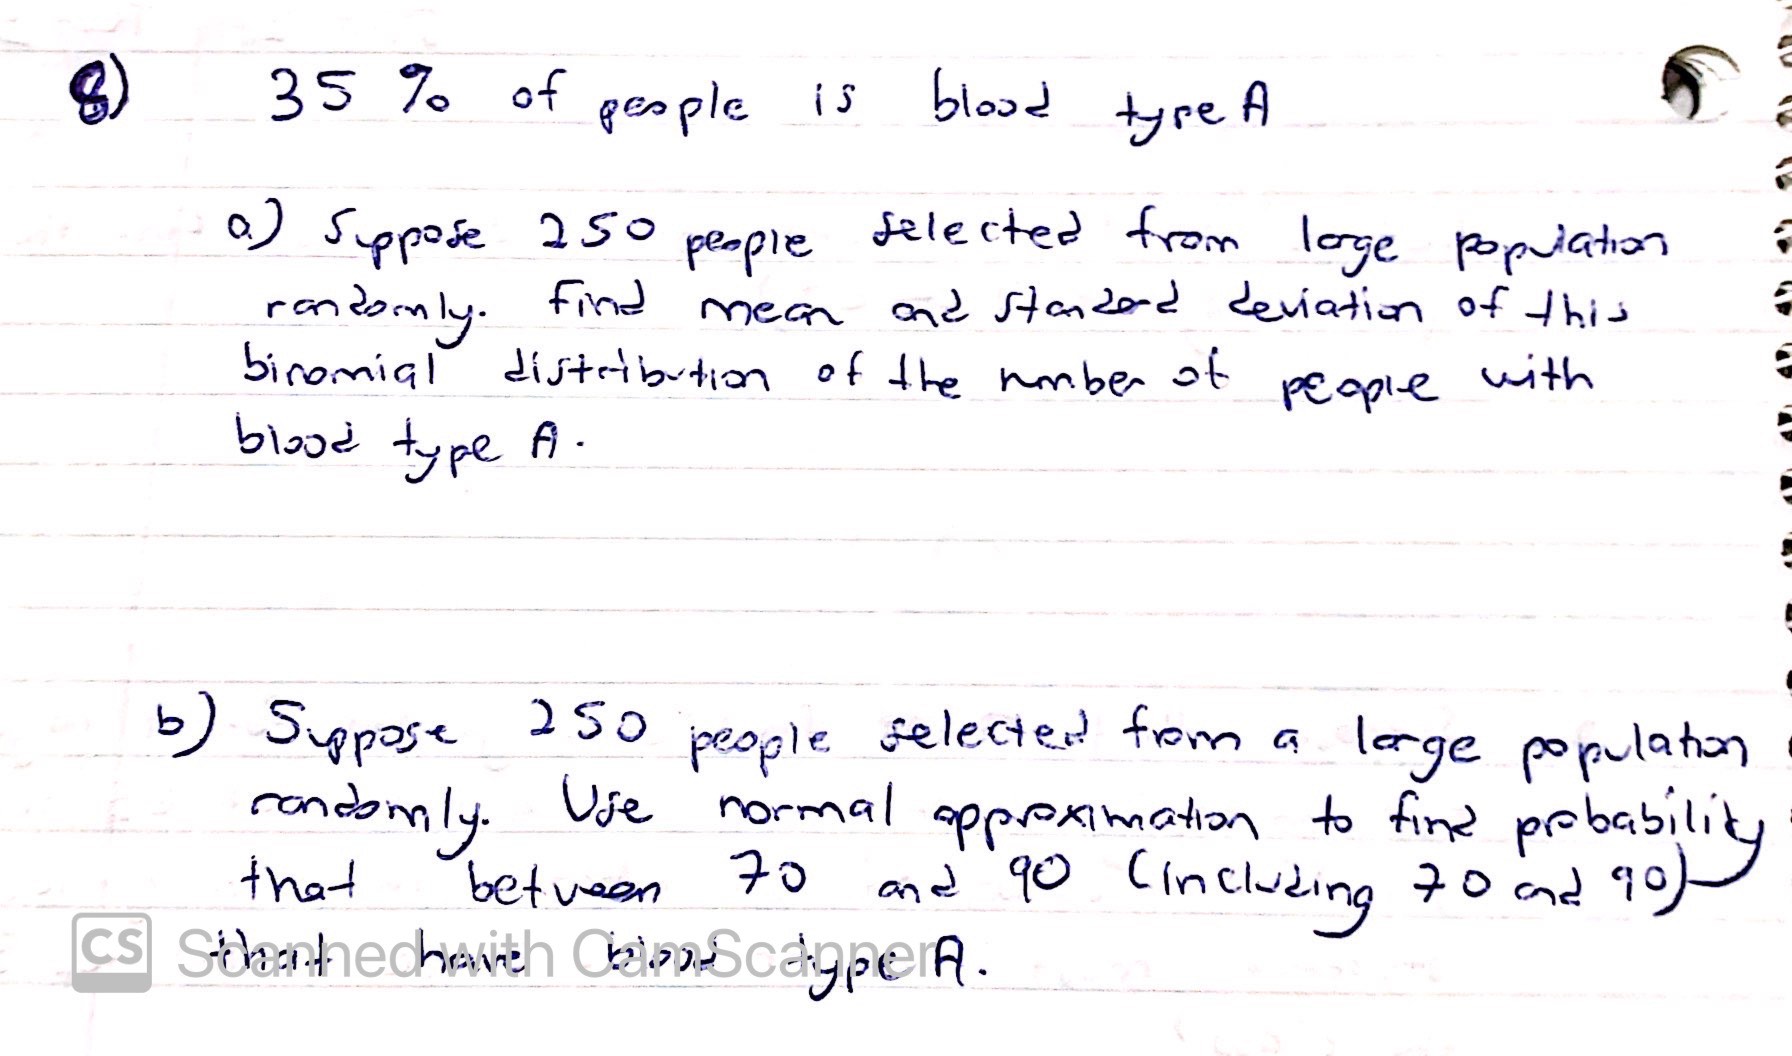 8) 35 % of people is blood type A
a) Suppose 250 people selected from large population
randomly. Find mean and standard deviation of this
binomial distribution of the number of people with
blood type A.
b) Suppose 250 people selected from a large population
randomly. Use normal approximation to find probability
that between 70 and 90 (including 70 and 90)
that have blood type A.
CS Scanned with CamScanner